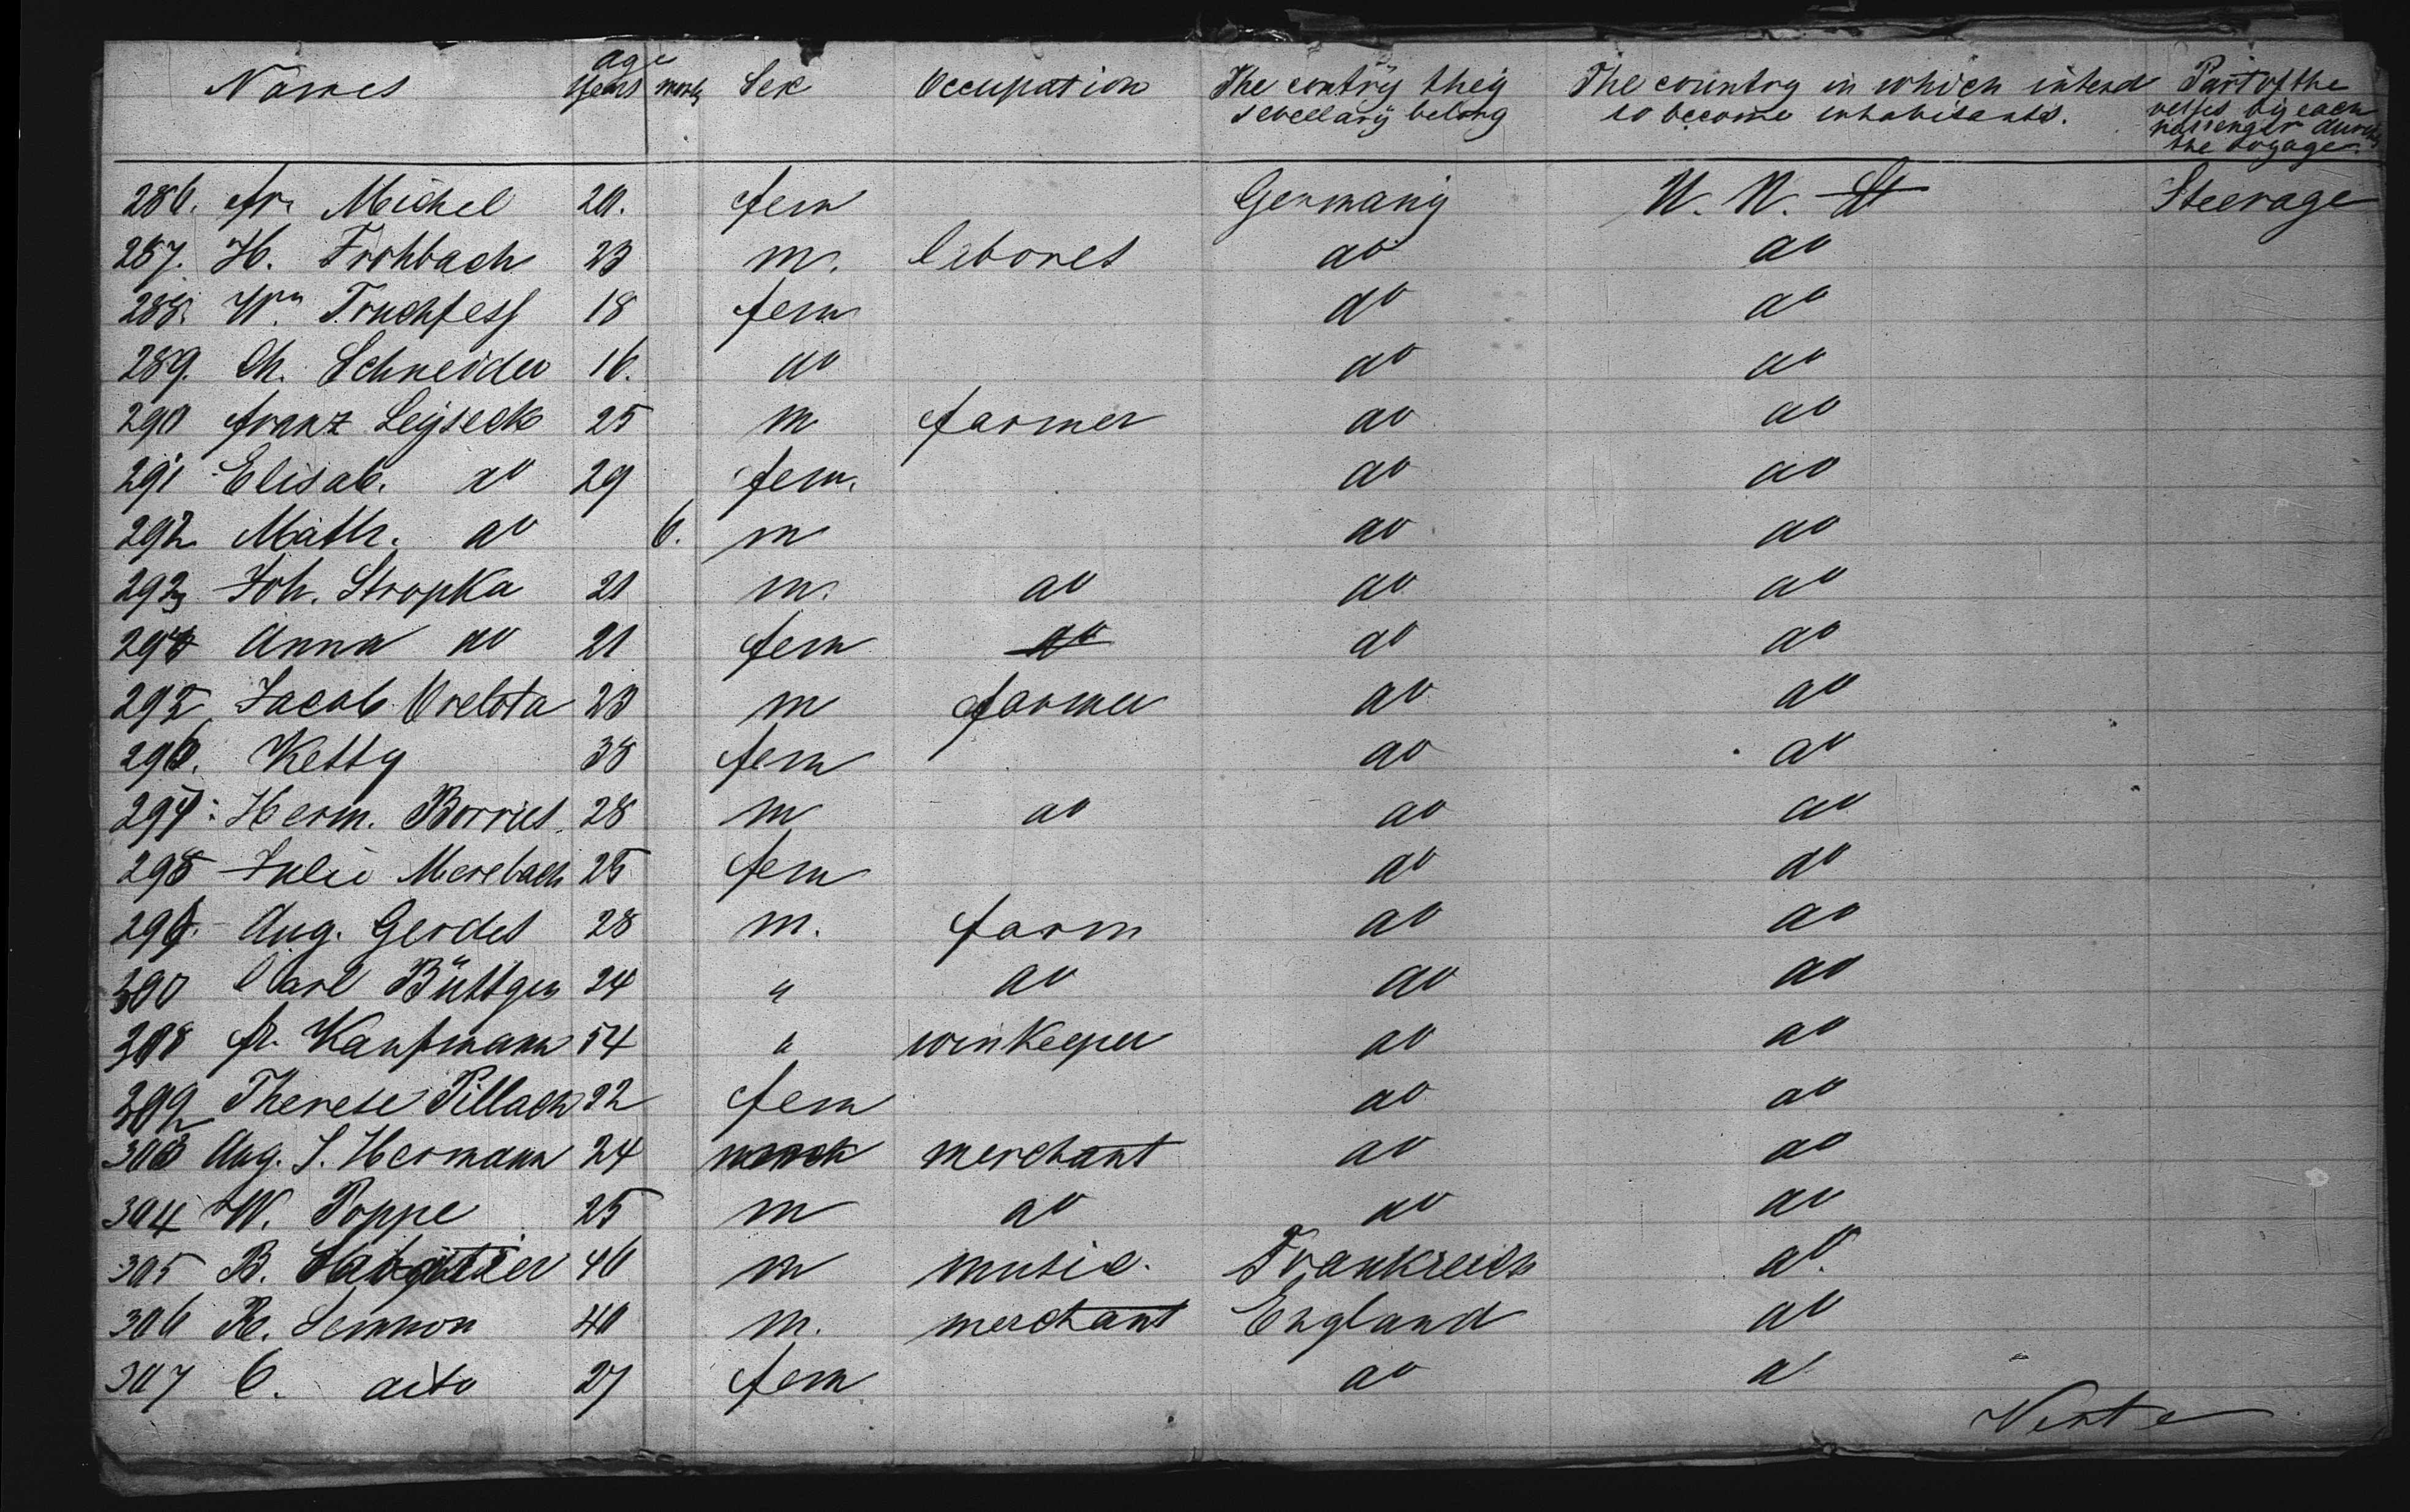 Names age years month Sex Occupation The contrÿ theÿ sevellarÿ belong The country in which intend to become inhabisants. Part of the vesses by each passenger during the voyage.
286. fr. Michel 20. fem Germany U. N. St Steerage
287. H. Frohbach 23 m. labores do do
288. Wm Truchsess 18 fem do do
289. Ch. Schneider 16. do do do
290 Franz Leyseck 25 m farmer do do
291 Elisab. do 29 fem. do do
292 Math. do 6. m do do
293 Joh. Stropka 21 m. do do do
294 Anna do 21 fem do do do
295 Jacob Orelota 23 m farmer do do
296. Ketty 38 fem do do
297. Herm. Borries 28 m do do do
298 Julie Merebach 25 fem do do
299. Aug. Gerdes 28 m. farm do do
300 Carl Büttgen 24 " do do do
301 fr. Kaufmann 54 " winkeeper do do
302 Therese Pillach 22 fem do do
303 Aug. S. Hermann 24 merchant do do
304 W. Poppe 25 m do do do
305 B. 46 m music. Frankreich do.
306 R. Lennon 40 m. merchant England do
307 C. dito 27 fem do d